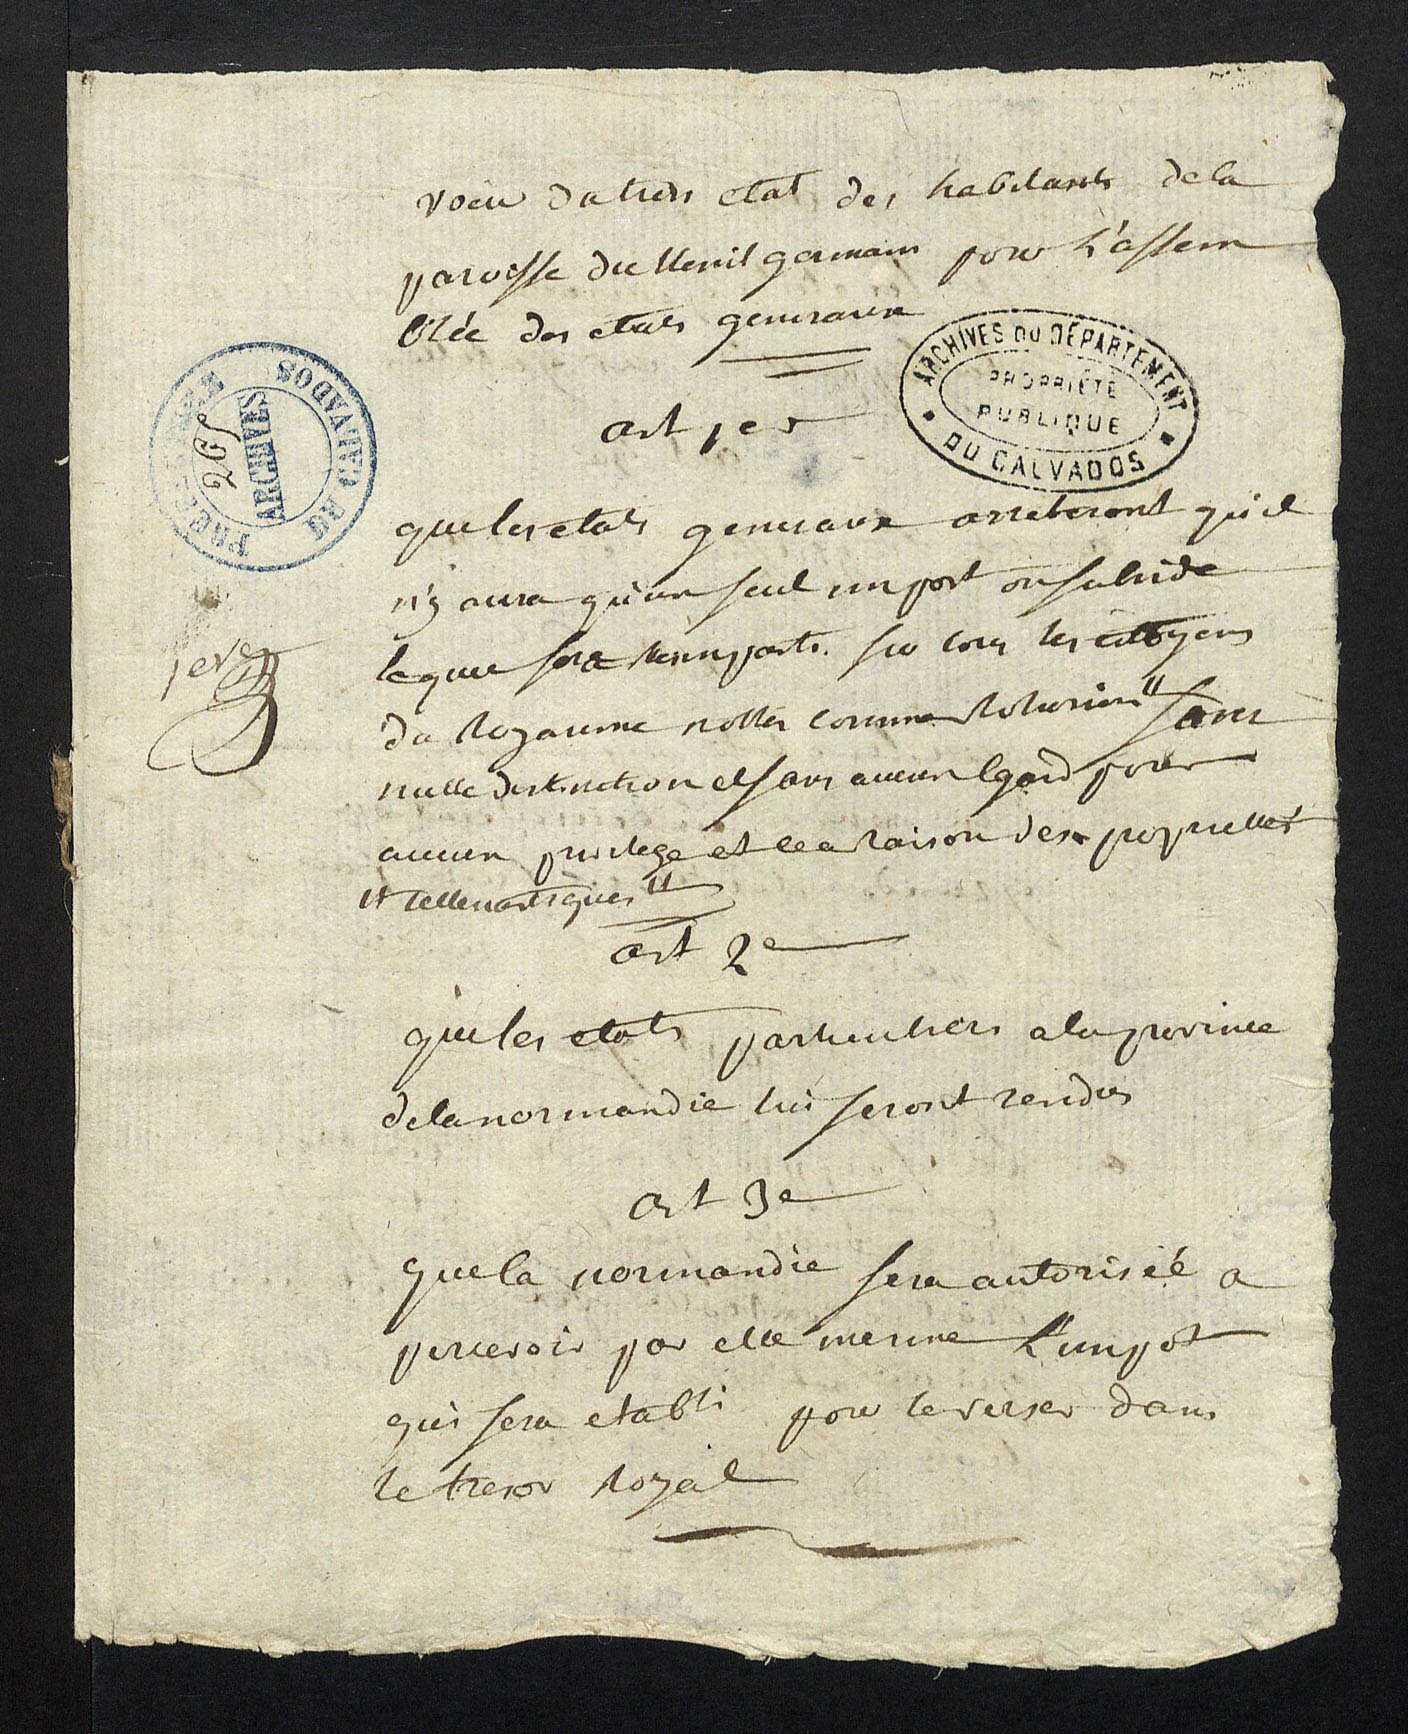 voeu du tiers etat des habitants de la
paroisse du Menil germain pour L'assem
blée des etats generaux
ARCHIVES DU DÉPARTEMENT
PROPRIÉTÉ
PUBLIQUE
DU CALVADOS
DU CALVADOS
ARCHIVES
265
art 1er
que les etats generaux arreteront qu'il
n'y aura qu'un seul impost ou subside
lequel sera reimparti sur tous les citoyens
1ere
du Royaume nobles comme Roturiers" sans
nulle distinction et sans aucun Egard pour
aucun privilege et ce a Raison des propriettes
art 2e
que les etats particuliers a la province
de la normandie lui seront rendus
art 3e
que la normandie sera autorisée a
percevoir par elle mesme L'impot
qui sera etabli pour le verser dans
le tresor Royal